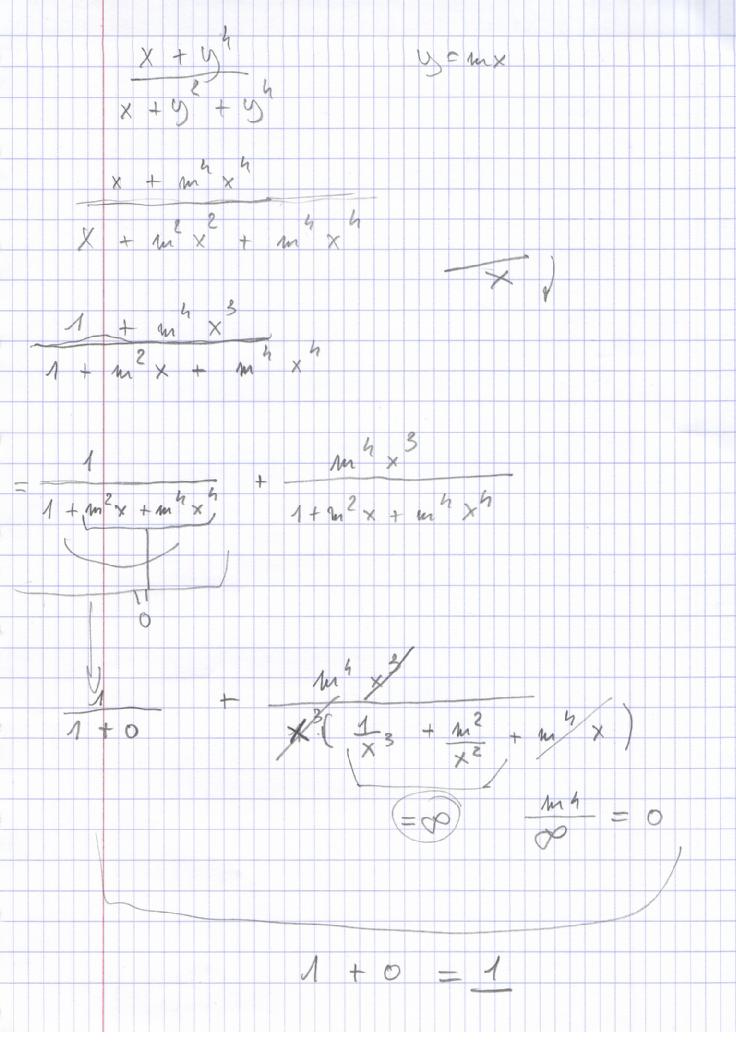 x + y⁴ / x + y² + y⁴    y = mx
x + m⁴ x⁴ / x + m² x² + m⁴ x⁴
/ x
1 + m⁴ x³ / 1 + m² x + m⁴ x⁴
= 1 / 1 + m² x + m⁴ x⁴ + m⁴ x³ / 1 + m² x + m⁴ x⁴
0
1 / 1 + 0 + m⁴ x³ / x³ ( 1 / x³ + m² / x² + m⁴ x )
= ∞    m⁴ / ∞ = 0
1 + 0 = 1